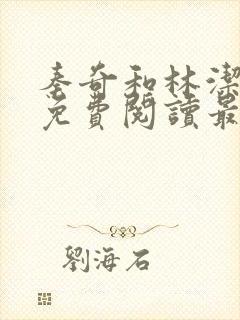 秦奇和林潔
免費閱讀最
劉海石